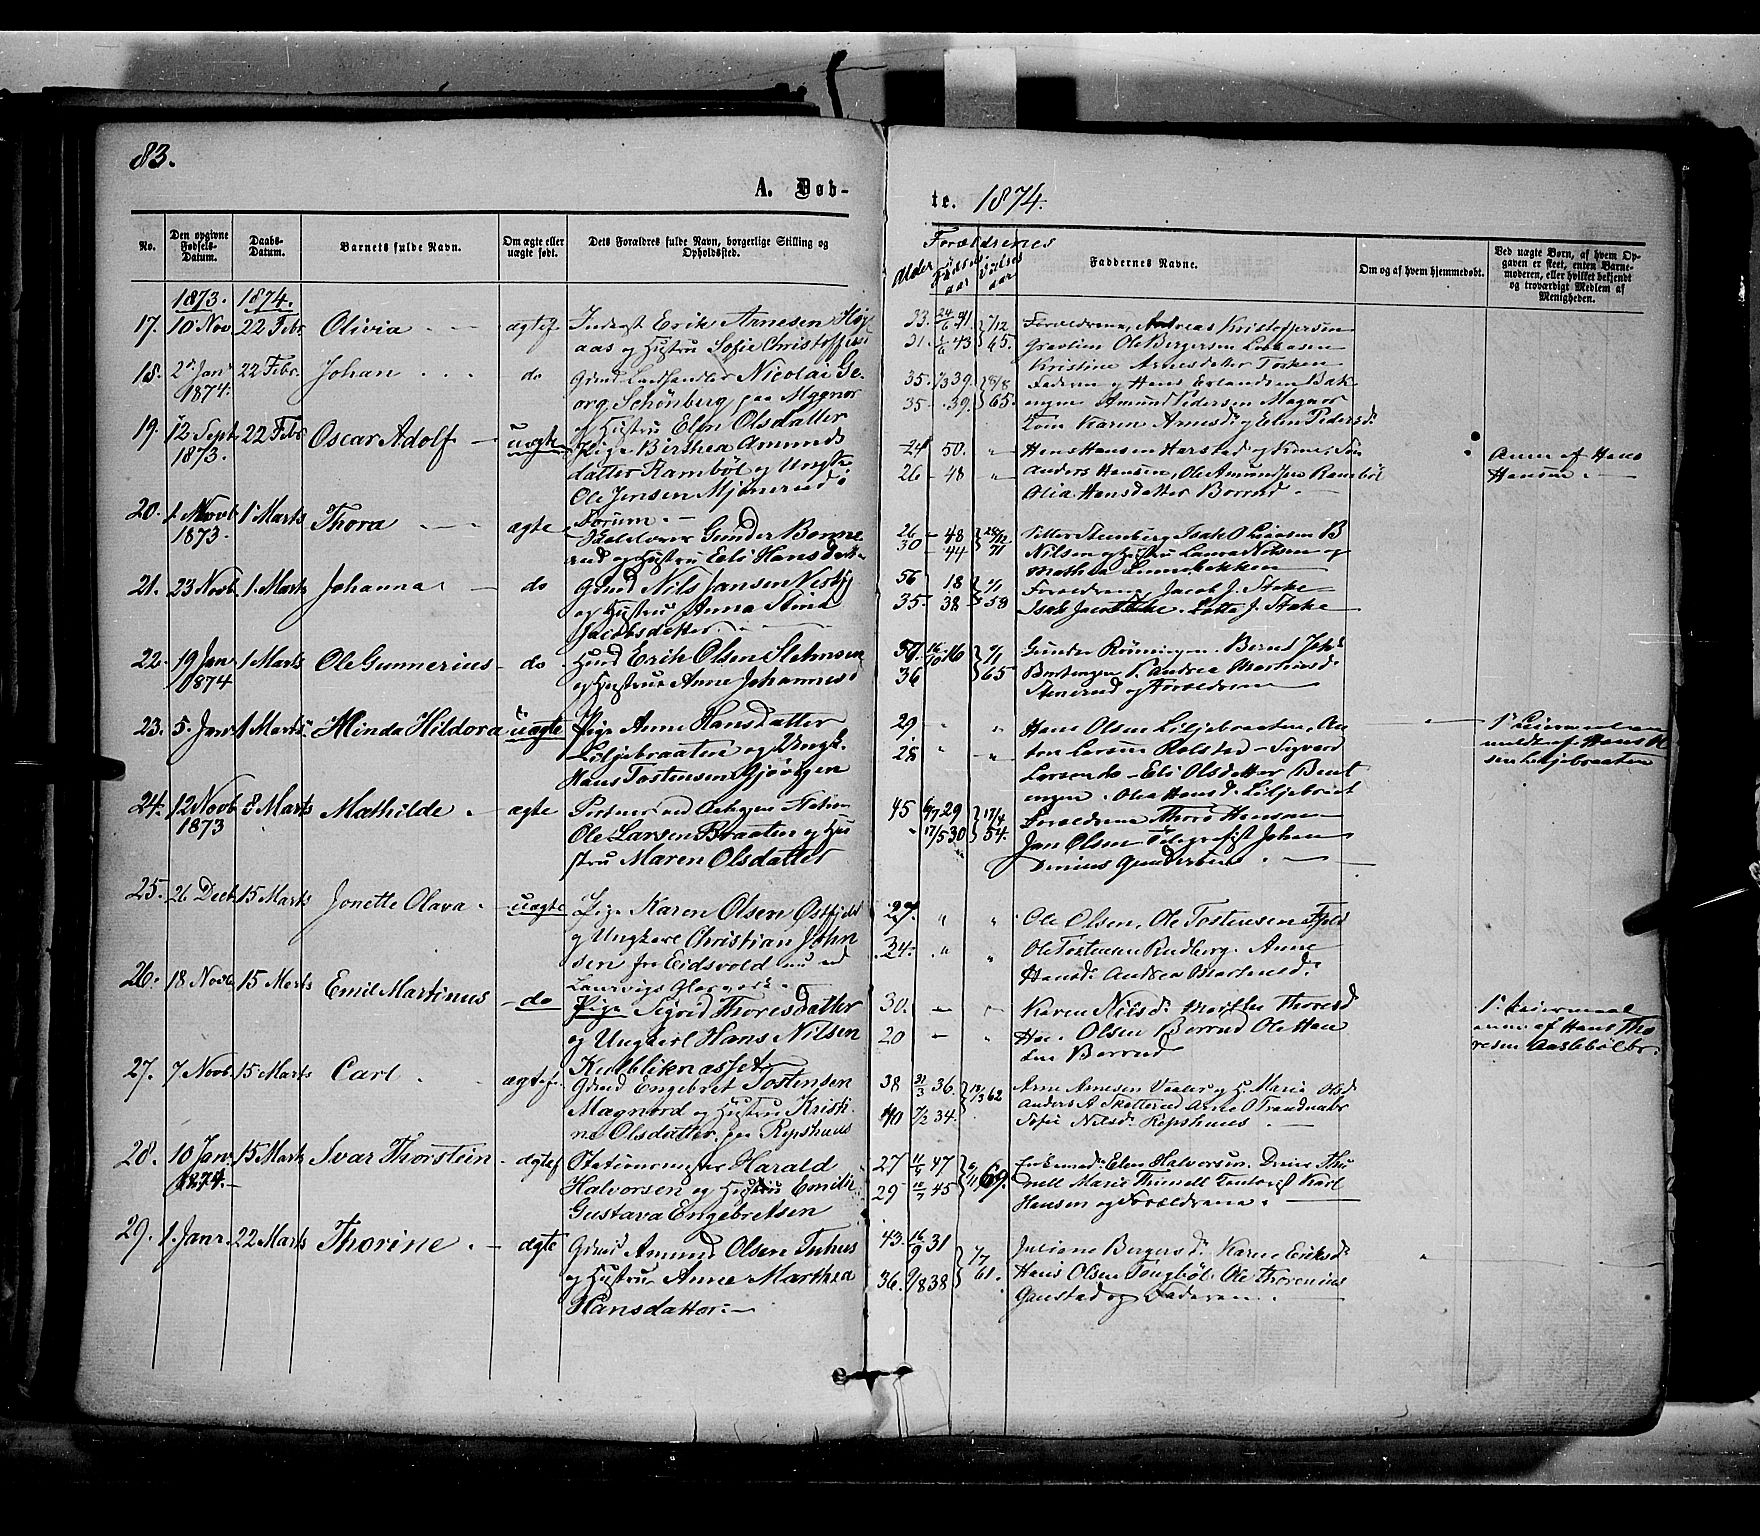 83.
A. Døb-
te. 1874.
No.
Den opgivne Fødsels-Datum.
Daabs-Datum.
Barnets fulde Navn.
Om ægte eller uægte født.
Dets Forældres fulde Navn, borgerlige Stilling og Opholdssted.
Forældrenes
Alder
Fødsels aar
Vielses aar
Faddernes Navne.
Om og af hvem hjemmedøbt.
Ved uægte Børn, af hvem Op-
gaven er skeet, enten Barne-
moderen, eller hvilket bekjendt
og troværdigt Medlem af
Menigheden.
1873. 1874.
17. 10 Nov 22 Febr Olivia ægtef.
Erik Arnesen
aas og Hustru Sofie Christoffersd
33. 24/6 41 } 1/12
31. 43 65.
Forældrene, Andreas Kristoffersen
Ole Bergersen
Kristine Arnesdatter
18. 2 Jan 1874. 22 Febr. Johan do
Landhandler Nicolai Ge-
org Schönberg paa Magnor
og Hustru Elen Olsdatter
35. 1/3 39. } 18/8
35. .39. 65.
Faderen og Hans Erlandsen Bak-
engen Amund Pedersen Magnor
Karen Arnesd. og Elen Pedersd.
19. 12 Sept 1873. 22 Febr Oscar Adolf uægte
Pige Birthea Amunds
datter Rambøl og Ungk.
Ole Jensen Mjønerud
24 50. "
26 48 "
Hans Hansen Harstad og Kone,
Anders Hansen, Ole Amundsen Rambøl
Olia Hansdatter Borrud.
Anm. af Hans
Hansen
20. 1 Novb 1873. 1 Marts Thora ægte
Gunder Bonne
rud og Hustru Eli Hansdatter
26 48 } 28/12
30 44 71
Petter Stenberg, Isak O
Nilsen og Hustru Laura Nilsen og
Mathea Linnebakken
21. 23 Novb 1. Marts Johanna do
Gmd Nils Jansen Nesby
og Hustru Anna Stina
Jacobsdatter.
56 18 }
35. 38 58
Forældrene, Jacob J. Stake
Isak Jacobs Stake. Lotte J. Stake
22. 19 Jan 1874 1 Marts Ole Gunnerius do
Husd Erik Olsen
og Hustru Anne Johannesd
57. 16/10 16 }
36 65
Gunder Rønningen. Bernt Joh.
Andrea Martinusd.
Stenerud og Forældrene
23. 5. Jan 1 Marts Minda Hildora uægte
Pige Anne Hansdatter
Liljebraaten og Ungk.
Hans Tostensen Gjövigen
29 " "
28 " "
Hans Olsen Liljebraaten, An-
ton Larsen Rolstad Sigvard
Larsen do Eli Olsdatter Bent
engen. Olea Hansd. Liljebraat
1ste Leiermaal an
meldt af Hans Ol
sen Liljebraaten
24. 12 Novb 1873 8 Marts Mathilde. ægte
Portner ved Aabogen Station
Ole Larsen Braaten og Hu
stru Maren Olsdatter
45 6/7 29 } 17/4
" 17/5 30 54.
Forældrene Thore Hansen
Jan Olsen Telegrafist Johan
Denius Gundersen
25. 26 Decb 15 Marts Jonette Olava. uægte
Pige Karen Olsen Østfjeld
og Ungkarl Christian John
sen fra Eidsvold nu ved
Laurvigs Glasværk.
27. " "
34. " "
Ole Olsen, Ole Tostensen Fjeld
Ole Tostensen Rudberg. Anne
Hansd. Andrea Martinusd.
26. 18 Novb 15 Marts Emil Martinus do
Pige Sigrid Thoresdatter
og Ungkarl Hans Nilsen
Kulblik næsset
30. "
20 "
Karen Nilsd. Marthe Thoresd
Olsen Borrud Ole Han
sen Borrud
1ste Leiermaal
anm. af Hans Tho
resen Aaslebølbr.
27. 7 Novb 15 Marts Carl ægtef.
Gmd Engebret Tostensen
Magnord og Hustru Kristi-
ne Olsdatter paa Repshuus
38 21/3 36. } 19/3 62
40 7/2 34.
Arne Arnesen Vaaler og H. Marie Olsd.
Anders A Skotterud Arne O Trandnabr
Sofie Nilsd. Repshuus.
28. 10 Jan 1874. 15 Marts Ivar Thorstein ægtef
Stationsmester Harald
Halvorsen og Hustru Emilie
Gustava Engebretsen
27 11/9 47 }
29 11/7 45 69.
Enkemad. Elen Halvorsen. Denis Thu
nell Marie Thunell Kantorist Karl
Hansen og Forældrene.
29. 1. Janr. 22 Marts Thorine. ægte
Gmd Amund Olsen Tuhus
og Hustru Anne Marthea
Hansdatter.
43. 16/9 31 } 7/7
36. 9/8 38 61.
Juliane Bergersd. Karen Eriksd.
Hans Olsen Tongbøl Ole Thorenius
Gaustad og Faderen.